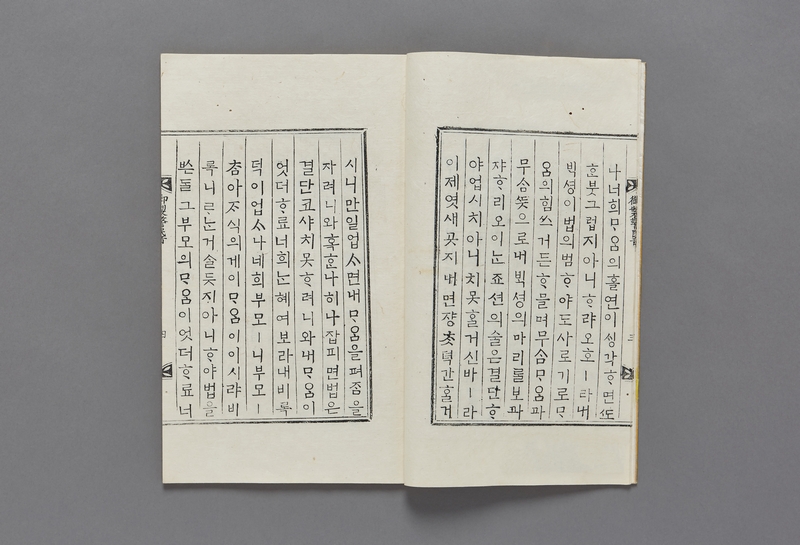 나너희ᄆᆞᄋᆞᆷ의홀연이ᄉᆡᆼ각ᄒᆞ면ᄯᅩ
ᄒᆞᆫ붓그럽지아니ᄒᆞ랴오흐ㅣ라내
ᄇᆡᆨ셩이법의범ᄒᆞ야도사로기로ᄆᆞ
ᄋᆞᆷ의힘쓰거든ᄒᆞ믈며무ᄉᆞᆷᄆᆞᄋᆞᆷ파
무ᄉᆞᆷᄯᅳᆺ으로내ᄇᆡᆨ셩의마리ᄅᆞᆯ보과
쟈ᄒᆞ리오이ᄂᆞᆫ죠션의술은결단ᄒᆞ
야업시치아니치못ᄒᆞᆯ거신바ㅣ라
이제엿새곳지내면쟝ᄎᆞᆺ력간ᄒᆞᆯ거
御製警民音
三
시니만일업ᄉᆞ면내ᄆᆞᄋᆞᆷ을펴줌을
자려니와혹ᄒᆞᆫ나히나잡피면법은
결단코샤치못ᄒᆞ려니와내ᄆᆞᄋᆞᆷ이
엇더ᄒᆞ료너희ᄂᆞᆫ혜여보라내비록
덕이업ᄉᆞ나네희부모ㅣ니부모ㅣ
ᄎᆞᆷ아ᄌᆞ식의게이ᄆᆞᄋᆞᆷ이이시랴비
록니ᄅᆞᄂᆞᆫ거ᄉᆞᆯ듯지아니ᄒᆞ야법을
ᄡᅳᆫᄃᆞᆯ그부모의ᄆᆞᄋᆞᆷ이엇더ᄒᆞ료너
四